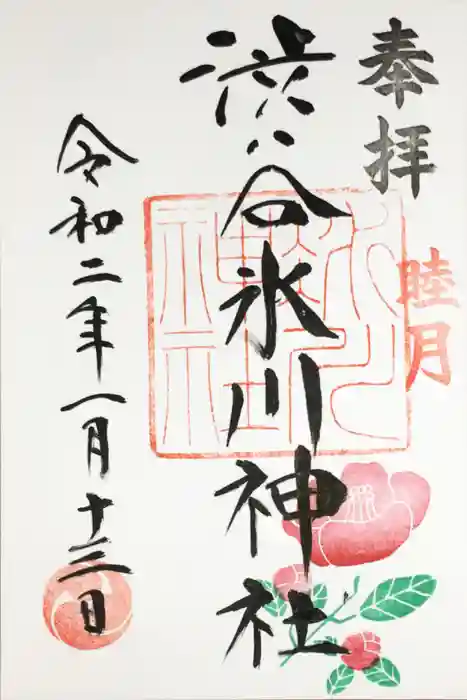 奉拝
睦月
渋谷氷川神社
氷川神社
令和二年一月十三日